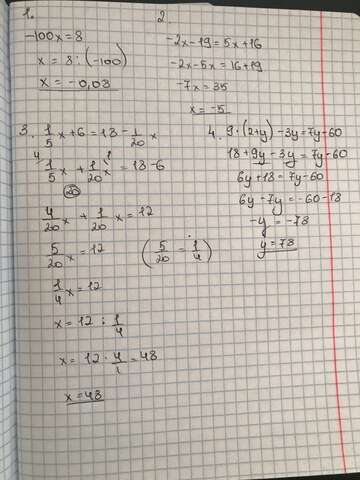 1.
-100x = 8
x = 8 : (-100)
x = -0,08
2.
-2x-19=5x+16
-2x-5x=16+19
-7x=35
x=-5
3. 1/5 x+6=18-1/20 x
4 1/5 x + 1/20 x 1 = 18-6
20
4/20 x + 1/20 x = 12
5/20 x = 12 (5/20 = 1/4)
1/4 x = 12
x = 12 : 1/4
x = 12 · 4/1 = 48
x=48
4. 9·(2+y)-3y=7y-60
18+9y-3y=7y-60
6y+18=7y-60
6y-7y=-60-18
-y=-78
y=78